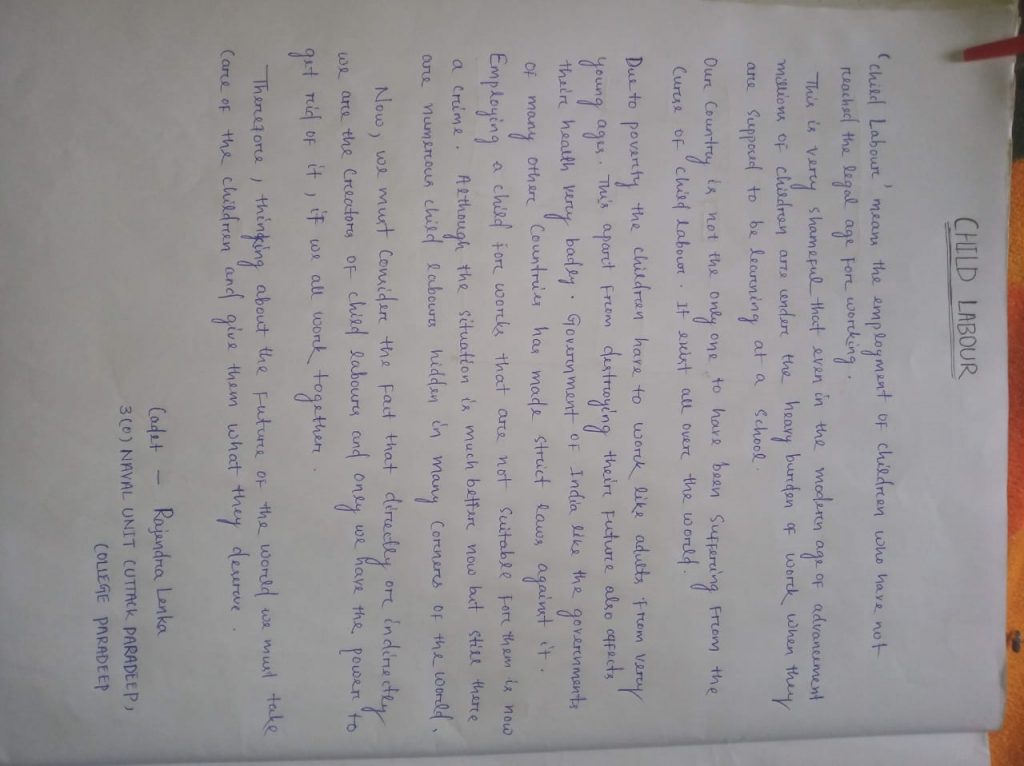 CHILD LABOUR
'Child Labour' means the employment of children who have not
reached the legal age for working.
This is very shameful that even in the modern age of advancement
millions of children are under the heavy burden of work when they
are supposed to be learning at a school.
Our Country is not the only one to have been suffering from the
curse of child labour. It exist all over the world.
Due to poverty the children have to work like adults from very
young ages. This apart from destroying their future also affects
their health very badly. Government of India like the governments
of many other Countries has made strict laws against it.
Employing a child for works that are not suitable for them is now
a crime. Although the situation is much better now but still there
are numerous child labours hidden in many corners of the world.
Now, we must Consider the fact that directly or indirectly
we are the creators of child labours and only we have the power to
get rid of it, if we all work together.
Therefore, thinking about the future of the world we must take
care of the children and give them what they deserve.
Cadet - Rajendra Lenka
3(O) NAVAL UNIT CUTTACK PARADEEP,
COLLEGE PARADEEP